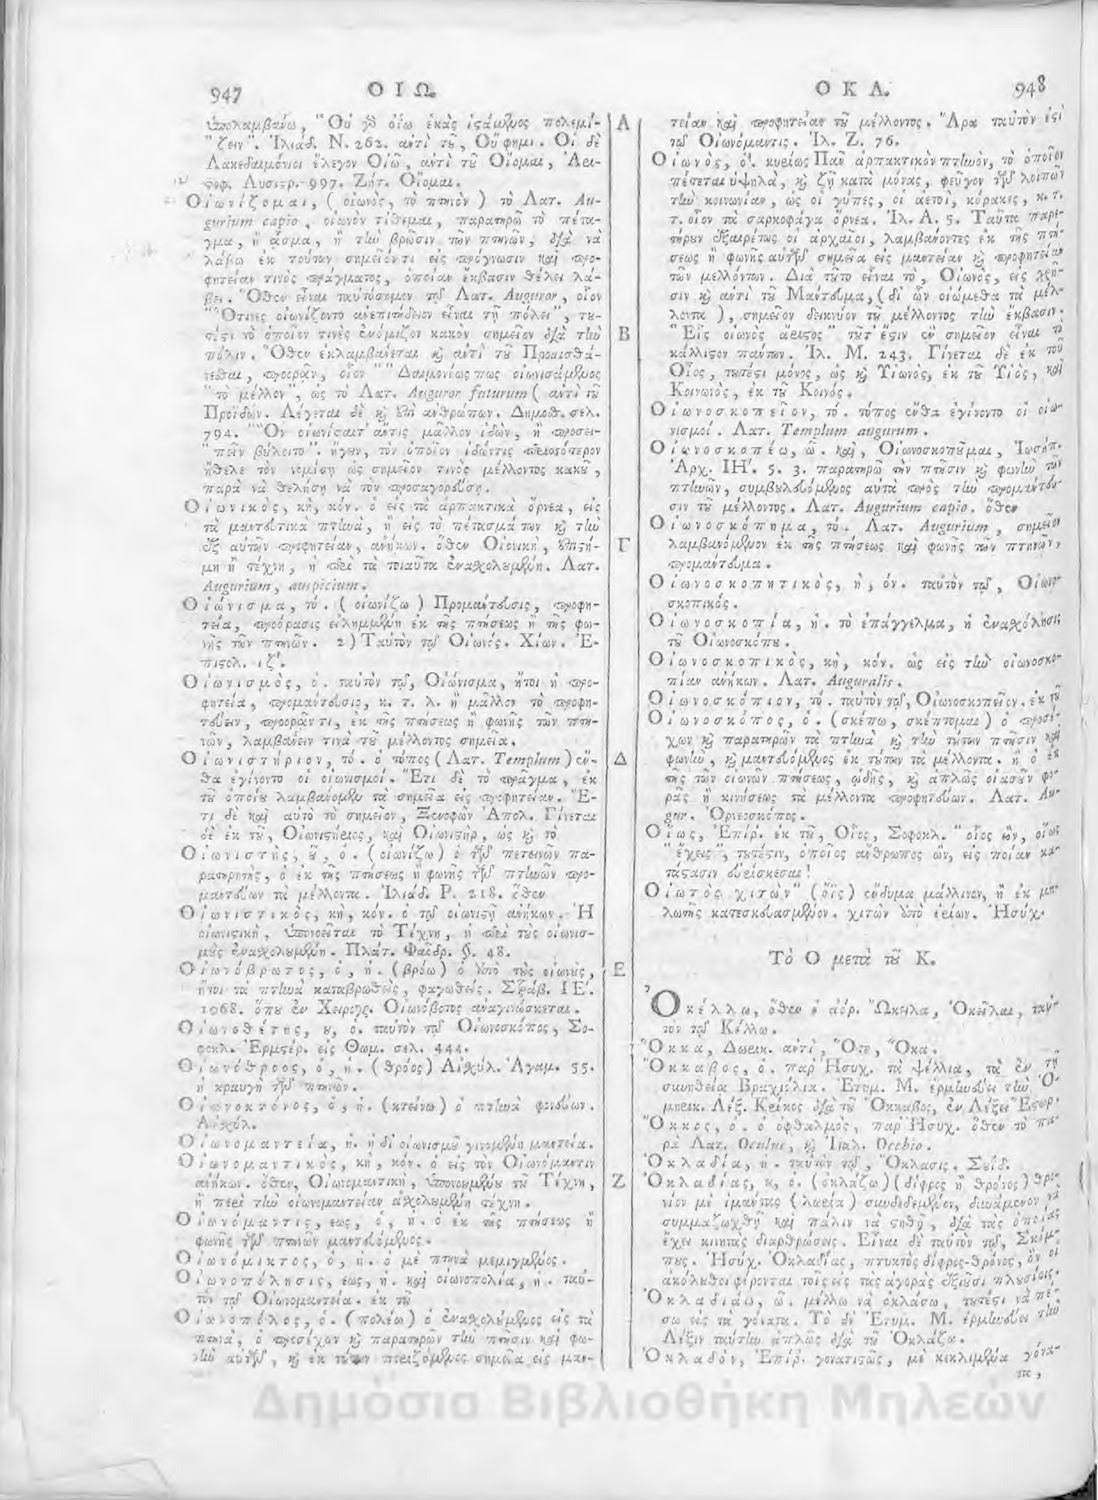 947 ΟΙΩ.
ὑπολαμβάνω, "Οὐ γὰρ ὀΐω ἑκὰς ἐσσόμενος πολεμί-
"ζειν". Ἰλιάδ. Ν. 262. ἀντὶ τοῦ, Οὔ φημι. Οἱ δὲ
Λακεδαιμόνιοι ἔλεγον Οἰῶ, ἀντὶ τοῦ Οἴομαι, Ἀρι-
στοφ. Λυσιστρ. 997. Ζήτ. Οἴομαι.
Οἰωνίζομαι, (οἰωνὸς, τὸ πτηνὸν) τὸ Λατ. Au-
gurium capio, οἰωνὸν τίθεμαι, παρατηρῶ τὸ πέτα-
γμα, ἢ ᾆσμα, ἢ τὴν βρῶσιν τῶν πτηνῶν, διὰ νὰ
λάβω ἐκ τούτων σημεῖόν τι εἰς πρόγνωσιν καὶ προ-
φητείαν τινὸς πράγματος, ὁποίαν ἔκβασιν θέλει λά-
βει. Ὅθεν εἶναι ταυτόσημον τῷ Λατ. Auguror, οἷον
"Ὅτινες οἰωνίζοντο ἀνεπιτήδειον εἶναι τῇ πόλει", του-
τέστι τὸ ὁποῖον τινὲς ἐνόμιζον κακὸν σημεῖον διὰ τὴν
πόλιν. Ὅθεν ἐκλαμβάνεται καὶ ἀντὶ τοῦ Προαισθά-
νεσθαι, προορᾶν, οἷον "Δαιμονίως πως οἰωνισάμενος
"τὸ μέλλον", ὡς τὸ Λατ. Auguror futurum (ἀντὶ τοῦ
Προϊδών. Λέγεται δὲ καὶ ἐπὶ ἀνθρώπων. Δημοσθ. σελ.
794. "Ὃν οἰωνίσαιτ' ἄν τις μᾶλλον ἰδὼν, ἢ προσει-
"πεῖν βούλοιτο". ἤγουν, τὸν ὁποῖον ἰδών τις περισσότερον
ἤθελε τὸν νομίσῃ ὡς σημεῖον τινὸς μέλλοντος κακοῦ,
παρὰ νὰ θελήσῃ νὰ τὸν προσαγορεύσῃ.
Οἰωνικὸς, κὴ, κόν. ὁ εἰς τὰ ἁρπακτικὰ ὄρνεα, εἰς
τὰ μαντευτικὰ πτηνὰ, ἢ εἰς τὸ πέτασμά των καὶ τὴν
ἐξ αὐτῶν προφητείαν, ἀνήκων. ὅθεν Οἰωνικὴ, ἐπιστή-
μη ἢ τέχνη, ἡ περὶ τὰ τοιαῦτα ἐνασχολουμένη. Λατ.
Augurium, auspicium.
Οἰώνισμα, τό. (οἰωνίζω) Προμάντευσις, προφη-
τεία, προόρασις εἰλημμένη ἐκ τῆς πτήσεως ἢ τῆς φω-
νῆς τῶν πτηνῶν. 2) Ταὐτὸν τῷ Οἰωνός. Χίων. Ἐ-
πιστολ. ιζ'.
Οἰωνισμὸς, ὁ. ταὐτὸν τῷ, Οἰώνισμα, ἤτοι ἡ προ-
φητεία, προμάντευσις, κ. τ. λ. ἢ μᾶλλον τὸ προφη-
τεύειν, προορᾶν τι, ἐκ τῆς πτήσεως ἢ φωνῆς τῶν πτη-
νῶν, λαμβάνειν τινὰ τοῦ μέλλοντος σημεῖα.
Οἰωνιστήριον, τό. ὁ τόπος (Λατ. Templum) ἔν-
θα ἐγίνοντο οἱ οἰωνισμοί. Ἔτι δὲ τὸ πρᾶγμα, ἐκ
τοῦ ὁποίου λαμβάνομεν τὰ σημεῖα εἰς προφητείαν. Ἔ-
τι δὲ καὶ αὐτὸ τὸ σημεῖον, Ξενοφῶν Ἀπολ. Γίνεται
δὲ ἐκ τοῦ, Οἰωνιστήριος, καὶ Οἰωνιστὴρ, ὡς καὶ τὸ
Οἰωνιστὴς, οῦ, ὁ. (οἰωνίζω) ὁ τῶν πετεινῶν πα-
ρατηρητὴς, ὁ ἐκ τῆς πτήσεως ἢ φωνῆς τῶν πτηνῶν προ-
μαντεύων τὰ μέλλοντα. Ἰλιάδ. Ρ. 218. ὅθεν
Οἰωνιστικὸς, κὴ, κόν. ὁ τῷ οἰωνιστῇ ἀνήκων. Ἡ
οἰωνιστική, ὑπονοεῖται τὸ Τέχνη, ἡ περὶ τοὺς οἰωνισ-
μοὺς ἐνασχολουμένη. Πλάτ. Φαῖδρ. §. 48.
Οἰωνόβρωτος, ὁ, ἡ. (βρόω) ὁ ὑπὸ τοὺς οἰωνοὺς,
ἤτοι τὰ πτηνὰ καταβρωθεὶς, φαγωθείς. Στράβ. ΙΕ'.
1068. ὅπου ἐν Χειρογρ. Οἰωνόβοτος ἀναγινώσκεται.
Οἰωνοθέτης, ου, ὁ. ταὐτὸν τῷ Οἰωνοσκόπος, Σο-
φοκλ. Ἑρμστέρ. εἰς Θωμ. σελ. 444.
Οἰωνόθροος, ὁ, ἡ. (θρόος) Αἰσχύλ. Ἀγαμ. 55.
ἡ κραυγὴ τῶν πτηνῶν.
Οἰωνοκτόνος, ὁ, ἡ. (κτείνω) ὁ πτηνὰ φονεύων.
Αἰσχύλ.
Οἰωνομαντεία, ἡ. ἡ δι' οἰωνισμοῦ γινομένη μαντεία.
Οἰωνομαντικὸς, κὴ, κόν. ὁ εἰς τὸν Οἰωνόμαντιν
ἀνήκων. ὅθεν, Οἰωνομαντικὴ, ὑπονοουμένου τοῦ Τέχνη,
ἡ περὶ τὴν οἰωνομαντείαν ἀσχολουμένη τέχνη.
Οἰωνόμαντις, εως, ὁ, ἡ. ὁ ἐκ τῆς πτήσεως ἢ
φωνῆς τῶν πτηνῶν μαντευόμενος.
Οἰωνόμικτος, ὁ, ἡ. ὁ μὲ πτηνὰ μεμιγμένος.
Οἰωνοπόλησις, εως, ἡ. καὶ οἰωνοπολία, ἡ. ταὐ-
τὸν τῷ Οἰωνομαντεία. ἐκ τοῦ
Οἰωνοπόλος, ὁ. (πολέω) ὁ ἐνασχολούμενος εἰς τὰ
πτηνὰ, ὁ προσέχων καὶ παρατηρῶν τὴν πτῆσιν καὶ φω-
νὴν αὐτῶν, καὶ ἐκ τούτων ποριζόμενος σημεῖα εἰς μαν-
Α
Β
Γ
Δ
Ε
Ζ
ΟΚΛ. 948
τείαν καὶ προφητείαν τοῦ μέλλοντος. Ἆρα ταὐτόν ἐστι
τῷ Οἰωνόμαντις. Ἰλ. Ζ. 76.
Οἰωνὸς, ὁ. κυρίως Πᾶν ἁρπακτικὸν πτηνὸν, τὸ ὁποῖον
πέτεται ὑψηλὰ, καὶ ζῇ κατὰ μόνας, φεῦγον τῶν λοιπῶν
τὴν κοινωνίαν, ὡς οἱ γύπες, οἱ ἀετοὶ, κόρακες, κ. τ.
τ. οἷον τὰ σαρκοφάγα ὄρνεα. Ἰλ. Α. 5. Ταῦτα παρε-
τήρουν ἐξαιρέτως οἱ ἀρχαῖοι, λαμβάνοντες ἐκ τῆς πτή-
σεως ἢ φωνῆς αὐτῶν σημεῖα εἰς μαντείαν καὶ προφητείαν
τῶν μελλόντων. Διὰ τοῦτο εἶναι τὸ, Οἰωνὸς, εἰς χρῆ-
σιν καὶ ἀντὶ τοῦ Μάντευμα, (δι' ὧν οἰώμεθα τὰ μέλ-
λοντα), σημεῖον δεικνύον τοῦ μέλλοντος τὴν ἔκβασιν.
"Εἷς οἰωνὸς ἄριστος" τοῦτ' ἔστιν ἓν σημεῖον εἶναι τὸ
κάλλιστον πάντων. Ἰλ. Μ. 243. Γίνεται δὲ ἐκ τοῦ
Οἶος, τουτέστι μόνος, ὡς καὶ Υἱωνὸς, ἐκ τοῦ Υἱὸς, καὶ
Κοινωνὸς, ἐκ τοῦ Κοινός.
Οἰωνοσκοπεῖον, τό. τόπος ἔνθα ἐγίνοντο οἱ οἰω-
νισμοί. Λατ. Templum augurum.
Οἰωνοσκοπέω, ῶ. καὶ, Οἰωνοσκοποῦμαι, Ἰωσήπ.
Ἀρχ. ΙΗ'. 5. 3. παρατηρῶ τὴν πτῆσιν καὶ φωνὴν τῶν
πτηνῶν, συμβουλευόμενος αὐτὰ πρὸς τὴν προμάντευ-
σιν τοῦ μέλλοντος. Λατ. Augurium capio. ὅθεν
Οἰωνοσκόπημα, τό. Λατ. Augurium, σημεῖον
λαμβανόμενον ἐκ τῆς πτήσεως καὶ φωνῆς τῶν πτηνῶν,
προμάντευμα.
Οἰωνοσκοπητικὸς, ἡ, όν. ταὐτὸν τῷ, Οἰωνο-
σκοπικός.
Οἰωνοσκοπία, ἡ. τὸ ἐπάγγελμα, ἡ ἐνασχόλησις
τοῦ Οἰωνοσκόπου.
Οἰωνοσκοπικὸς, κὴ, κόν. ὡς εἰς τὴν οἰωνοσκο-
πίαν ἀνήκων. Λατ. Auguralis.
Οἰωνοσκόπιον, τό. ταὐτὸν τῷ, Οἰωνοσκοπεῖον. ἐκ τοῦ
Οἰωνοσκόπος, ὁ. (σκέπω, σκέπτομαι) ὁ προσέ-
χων καὶ παρατηρῶν τὰ πτηνὰ καὶ τὴν τούτων πτῆσιν καὶ
φωνὴν, καὶ μαντευόμενος ἐκ τούτων τὰ μέλλοντα. ἢ ὁ ἐκ
τῆς τῶν οἰωνῶν πτήσεως, ᾠδῆς, καὶ ἁπλῶς οἱασοῦν φο-
ρᾶς ἢ κινήσεως τὰ μέλλοντα προφητεύων. Λατ. Au-
gur. Ὀρνεοσκόπος.
Οἵως, Ἐπίρ. ἐκ τοῦ, Οἷος, Σοφοκλ. "οἷος ὢν, οἵως
"ἔχεις", τουτέστιν, ὁποῖος ἄνθρωπος ὢν, εἰς ποίαν κα-
τάστασιν εὑρίσκεσαι!
Οἰωτὸς χιτὼν" (ὄϊς) ἔνδυμα μάλλινον, ἢ ἐκ μη-
λωτῆς κατεσκευασμένον. χιτὼν ὑπὸ ἐρίων. Ἡσύχ.
Τὸ Ο μετὰ τοῦ Κ.
Ὀκέλλω, ὅθεν ὁ ἀόρ. Ὤκειλα, Ὀκεῖλαι, ταὐ-
τὸν τῷ Κέλλω.
Ὄκκα, Δωρικ. ἀντὶ, Ὅτε, Ὅκα.
Ὄκκαβος, ὁ. παρ' Ἡσυχ. τὰ ψέλλια, τὰ ἐν τῇ
συνηθείᾳ Βραχιόλια. Ἐτυμ. Μ. ἑρμηνεύει τὴν Ὁ-
μηρικ. Λέξ. Κρίκος διὰ τοῦ Ὄκκαβος, ἐν Λέξει Ἕστωρ.
Ὄκκος, ὁ. ὁ ὀφθαλμὸς, παρ' Ἡσυχ. ὅθεν τὸ πα-
ρὰ Λατ. Oculus, καὶ Ἰταλ. Occhio.
Ὀκλαδία, ἡ. ταὐτὸν τῷ, Ὄκλασις. Σουΐδ.
Ὀκλαδίας, ου, ὁ. (ὀκλάζω) (δίφρος ἢ θρόνος) θρο-
νίον μὲ ἱμάντας (λωρία) συνδεδεμένον, δυνάμενον νὰ
συμμαζωχθῇ καὶ πάλιν νὰ στηθῇ, διὰ τὰς ὁποίας
ἔχει κινητὰς διαρθρώσεις. Εἶναι δὲ ταὐτὸν τῷ, Σκίμ-
πους. Ἡσύχ. Ὀκλαδίας, πτυκτὸς δίφρος-θρόνος, ὃν οἱ
ἀκόλουθοι φέρονται τοῖς εἰς τὰς ἀγορὰς ἐξιοῦσι πλουσίοις.
Ὀκλαδιάω, ῶ. μέλλω νὰ ὀκλάσω, τουτέστι νὰ πέ-
σω εἰς τὰ γόνατα. Τὸ δὲ Ἐτυμ. Μ. ἑρμηνεύει τὴν
Λέξιν ταύτην ἁπλῶς διὰ τοῦ Ὀκλάζω.
Ὀκλαδὸν, Ἐπίρ. γονατιστῶς, μὲ κεκλιμένα γόνα-
τα,
Δημόσια Βιβλιοθήκη Μηλεών